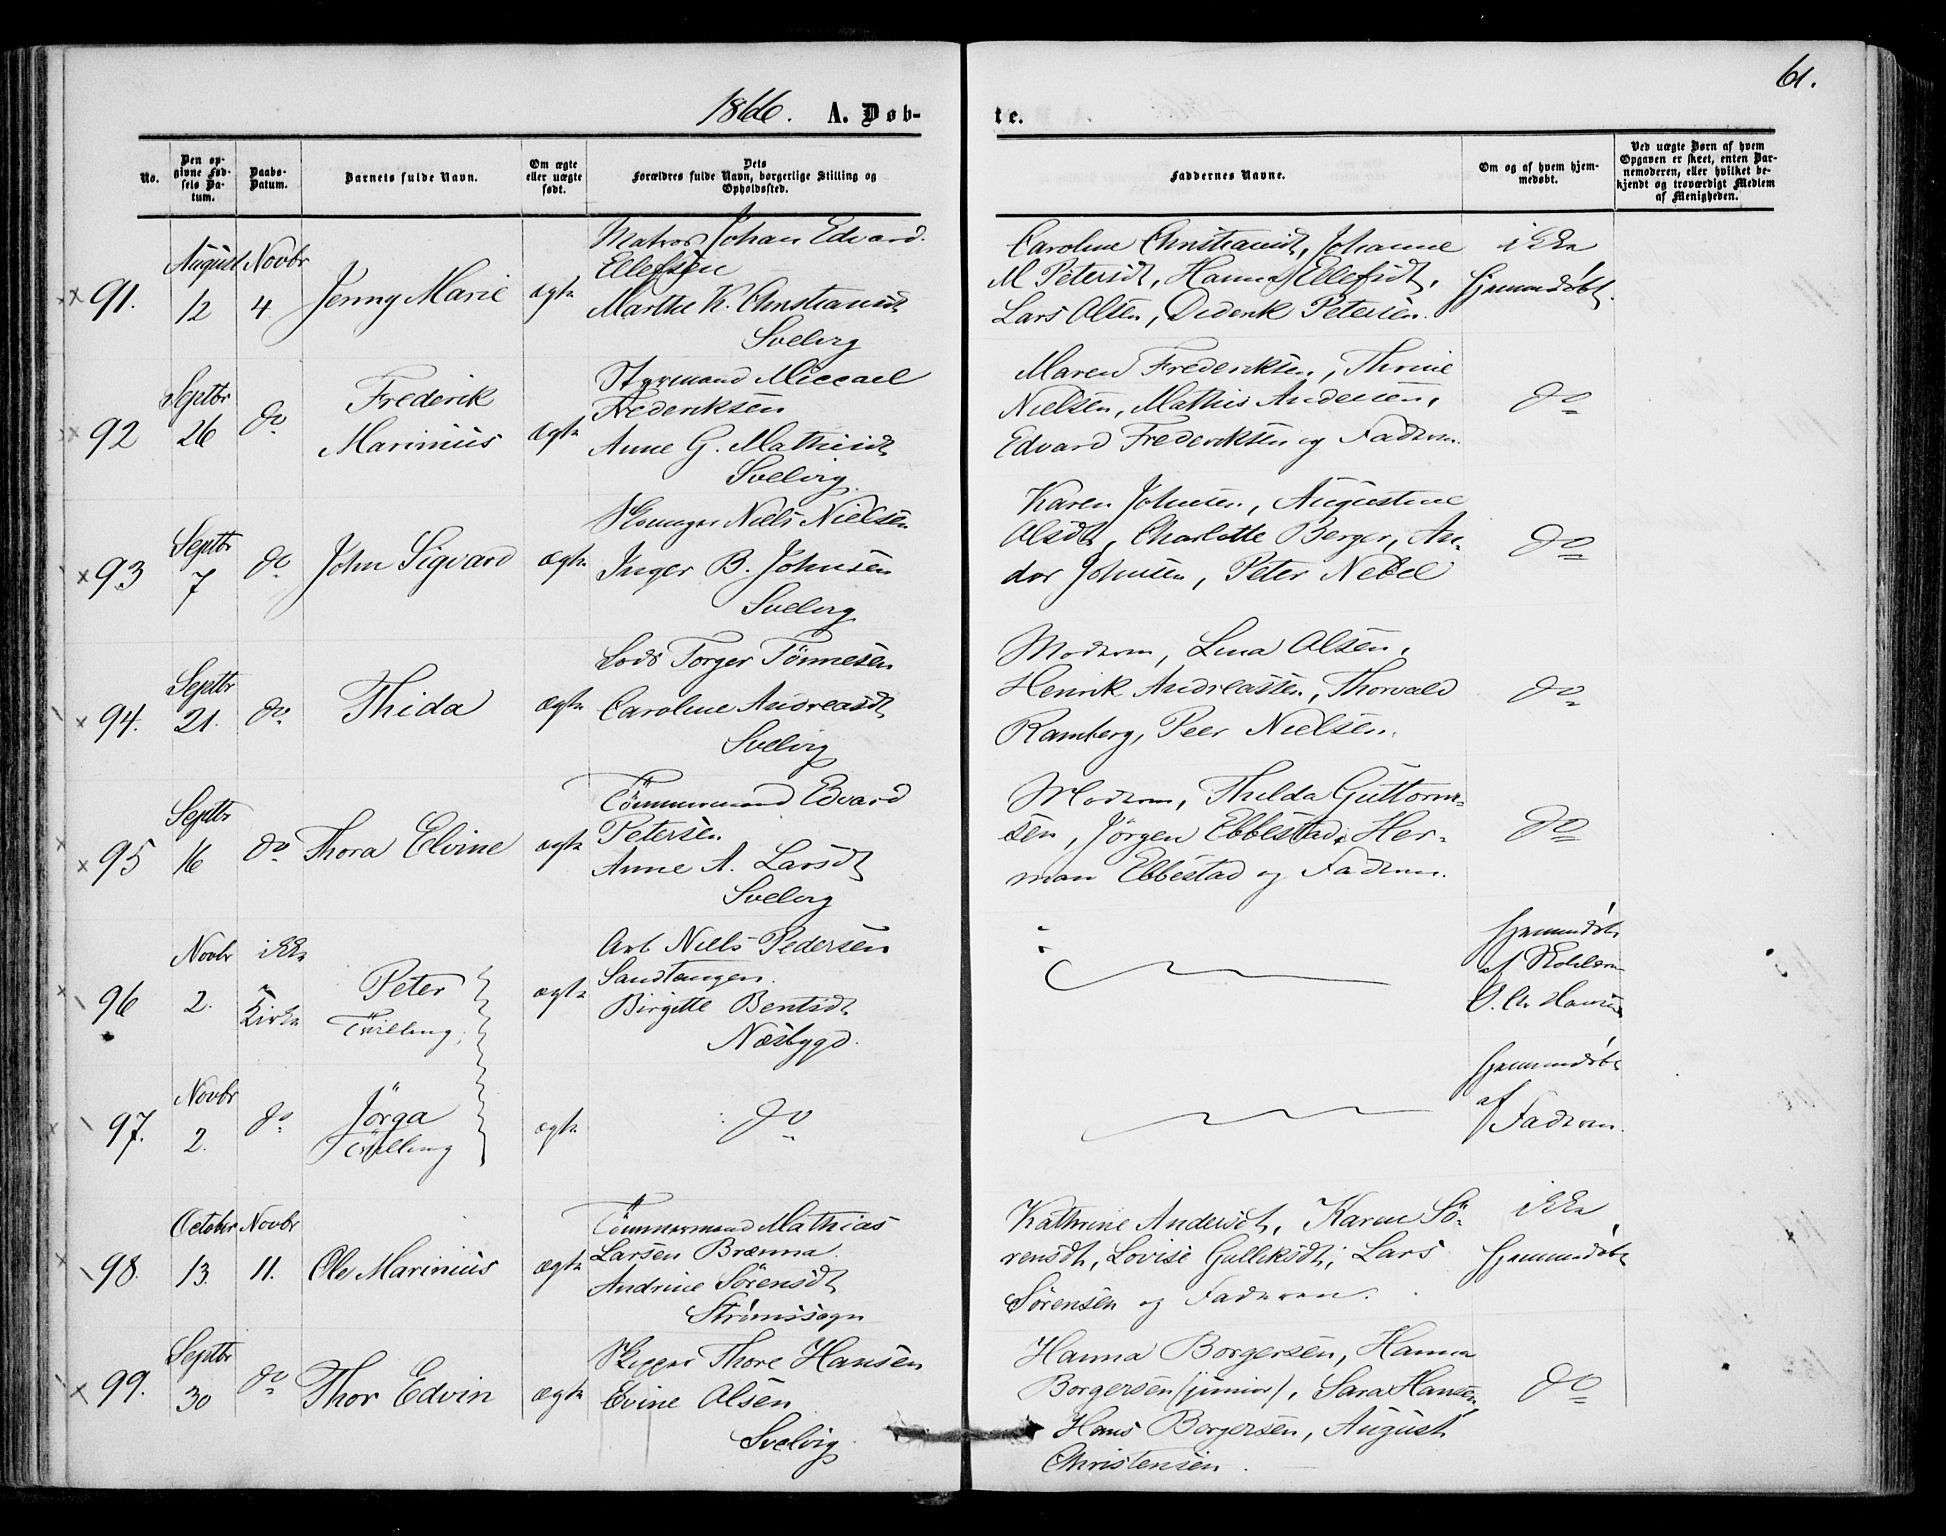 61.
1866. A. Døb-
te.
No.
Den op-
givne Fød-
sels Da-
tum.
Daabs-
Datum.
Barnets fulde Navn.
Om ægte
eller uægte
født.
Dets
Forældres fulde Navn, borgerlige Stilling og
Opholdssted.
Faddernes Navne.
Om og af hvem hjem-
medøbt.
Ved uægte Børn af hvem
Opgaven er skeet, enten Bar-
nemoderen, eller hvilket be-
kjendt og troværdigt Medlem
af Menigheden.
91.
August
12
Novbr
4
Jenny Marie
ægte
Matros Johan Edvard
Ellefsen
Marthe K. Christiansdt
Svelvig
Caroline Christiansdt, Johanne
M Petersdt, Hanna Ellefsdt,
Lars Olsen, Dederik Petersen.
ikke
hjemmedøbt.
92
Septbr
26
do
Frederik
Marinius
ægte
Styrmand Miccael
Frederiksen
Anne G. Mathisdt
Svelvig.
Maren Frederiksen, Thrine
Nielsen, Mathis Andersen,
Edvard Frederiksen og Faderen.
do
93
Septbr
7
do
John Sigvard
ægte
Niels Nielsen
Inger B. Johnsen
Svelvig
Karen Johnsen, Augustine
Olsdt, Charlotte Berger, An-
dor Johnsen, Peter Nebel
do
94.
Septbr
21.
do
Thida
ægte
Lods Torger Tönnesen
Caroline Andreasdt
Svelvig
Moderen, Lina Olsen,
Henrik Andreassen, Thorvald
Ramberg, Peer Nielsen.
do
95
Septbr
16
do
Thora Elvine
ægte
Tömmermand Edvard
Petersen
Anne A. Larsdt
Svelvig
Moderen, Thilda Guttorm-
sen, Jörgen Ebbestad, Her-
man Ebbestad og Faderen.
do
96
Novbr
2.
ikke
i
Kirke
Peter
Tvilling,
ægte
Arb Niels Pedersen
Sandtangen.
Birgitte Bentsdt
Næsbygd.
hjemmedøbt
af
Hansen
97.
Novbr
2.
do
Jörga
Tvilling
ægte
do
hjemmedøbt
af
Faderen.
98.
October
13.
Novbr
11.
Ole Marinius
ægte
Tömmermand Mathias
Larsen Brænna.
Andrine Sörensdt
Strömssogn
Kathrine Andersdt, Karen Sö-
rensdt, Lovise Gulliksdt, Lars
Sörensen og Faderen.
ikke
hjemmedøbt
99.
Septbr
30
do
Thor Edvin
ægte
Skipper Thore Hansen
Evine Olsen
Svelvig.
Hanna Borgersen, Hanna
Borgersen (junior), Sara Hansen,
Hans Borgersen, August
Christensen.
do